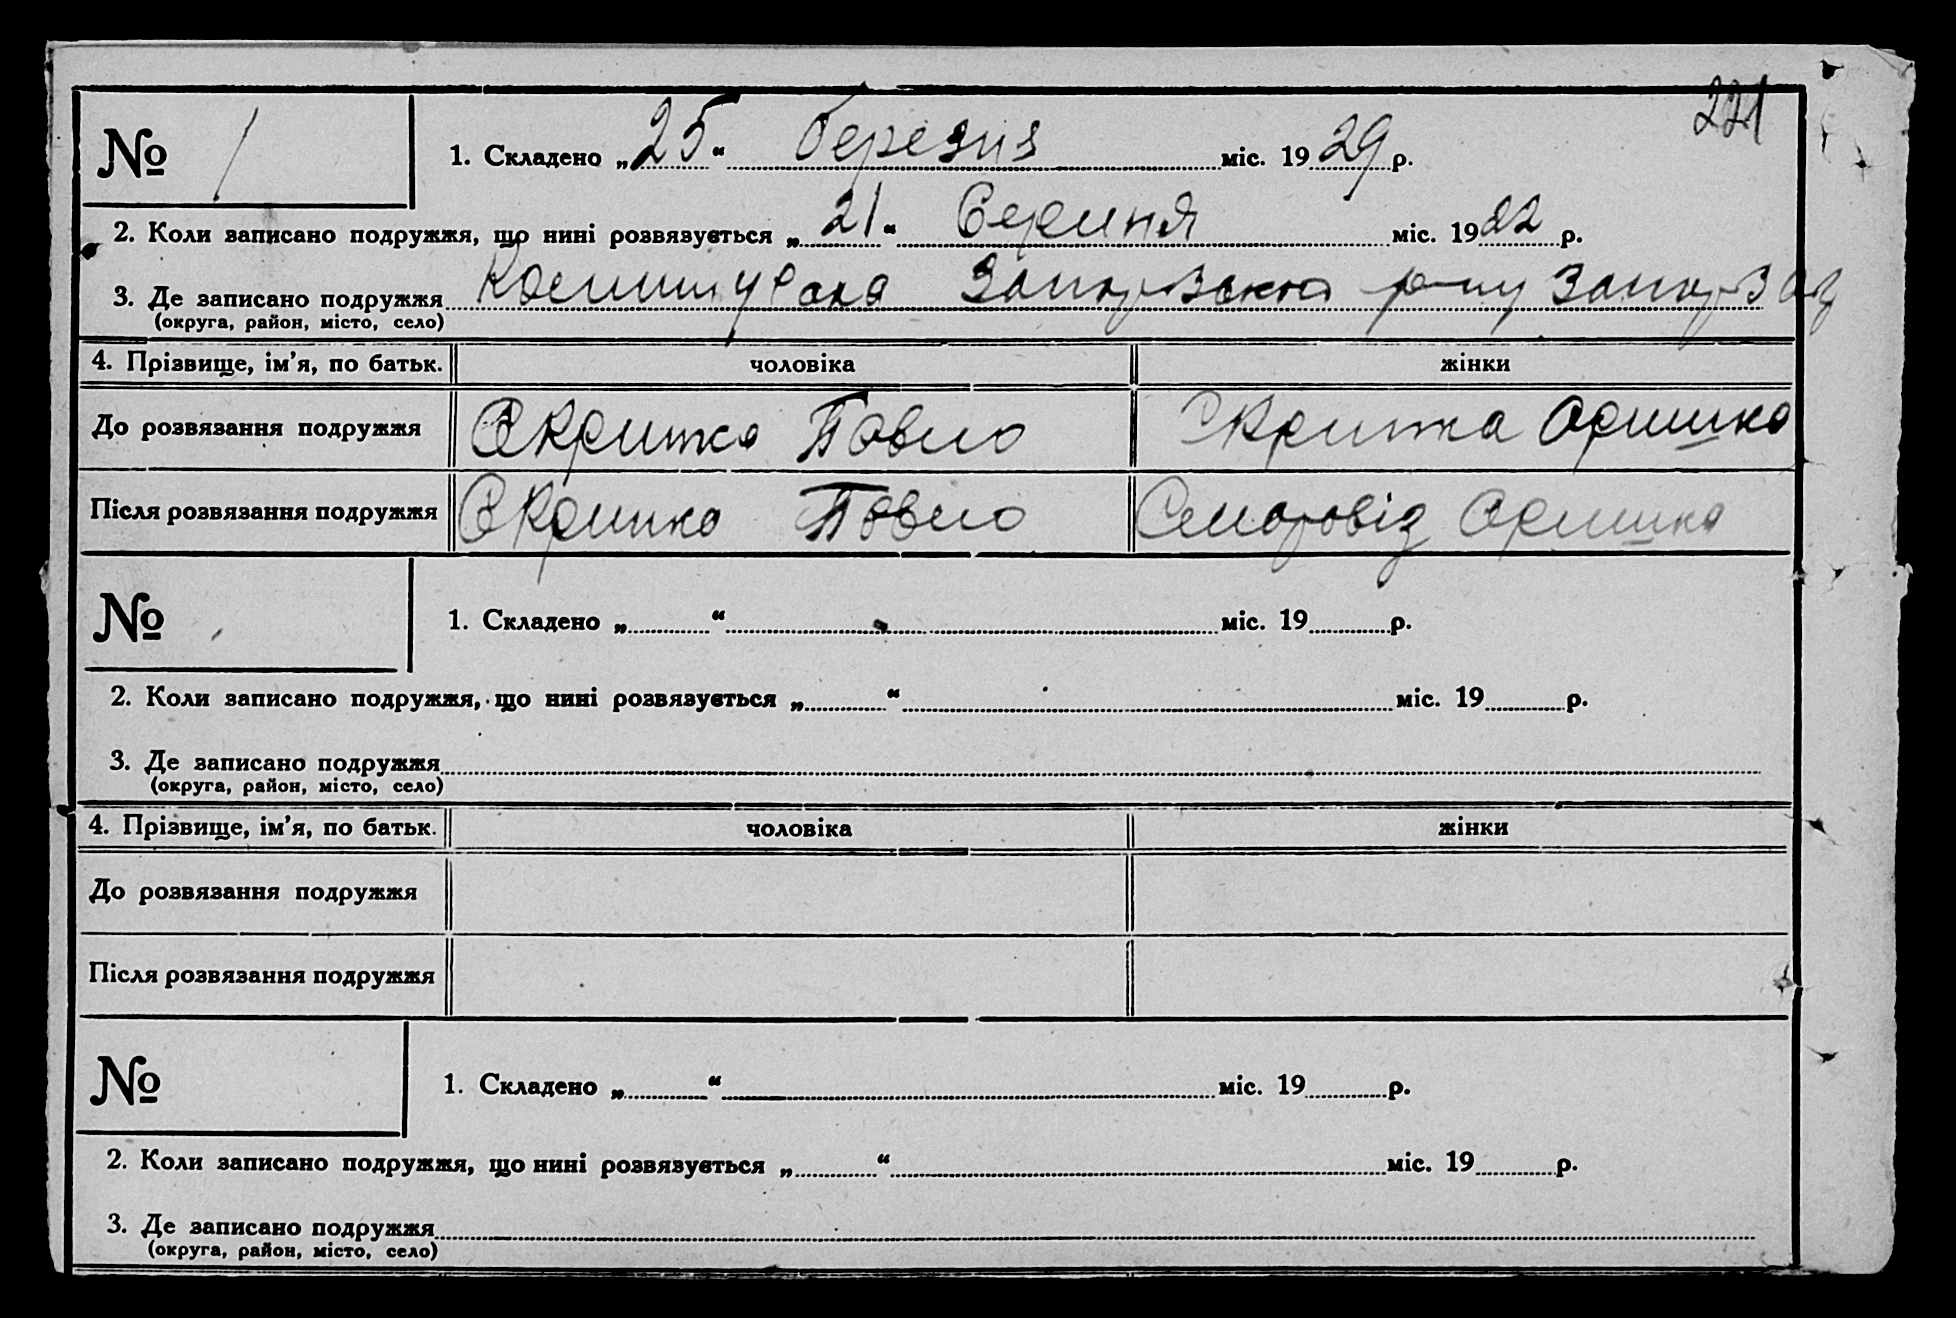 221
№ 1
1. Складено „25“ березня міс. 1929 р.
2. Коли записано подружжя, що нині розвязується „21“ Серпня міс. 1922 р.
3. Де записано подружжя
(округа, район, місто, село)
4. Прізвище, ім’я, по батьк. чоловіка жінки
До розвязання подружжя Скрипка Павло Скрипка Оришка
Після розвязання подружжя Скрипка Павло Оришка
№
1. Складено „ “ міс. 19 р.
2. Коли записано подружжя, що нині розвязується „ “ міс. 19 р.
3. Де записано подружжя
(округа, район, місто, село)
4. Прізвище, ім’я, по батьк. чоловіка жінки
До розвязання подружжя
Після розвязання подружжя
№
1. Складено „ “ міс. 19 р.
2. Коли записано подружжя, що нині розвязується „ “ міс. 19 р.
3. Де записано подружжя
(округа, район, місто, село)